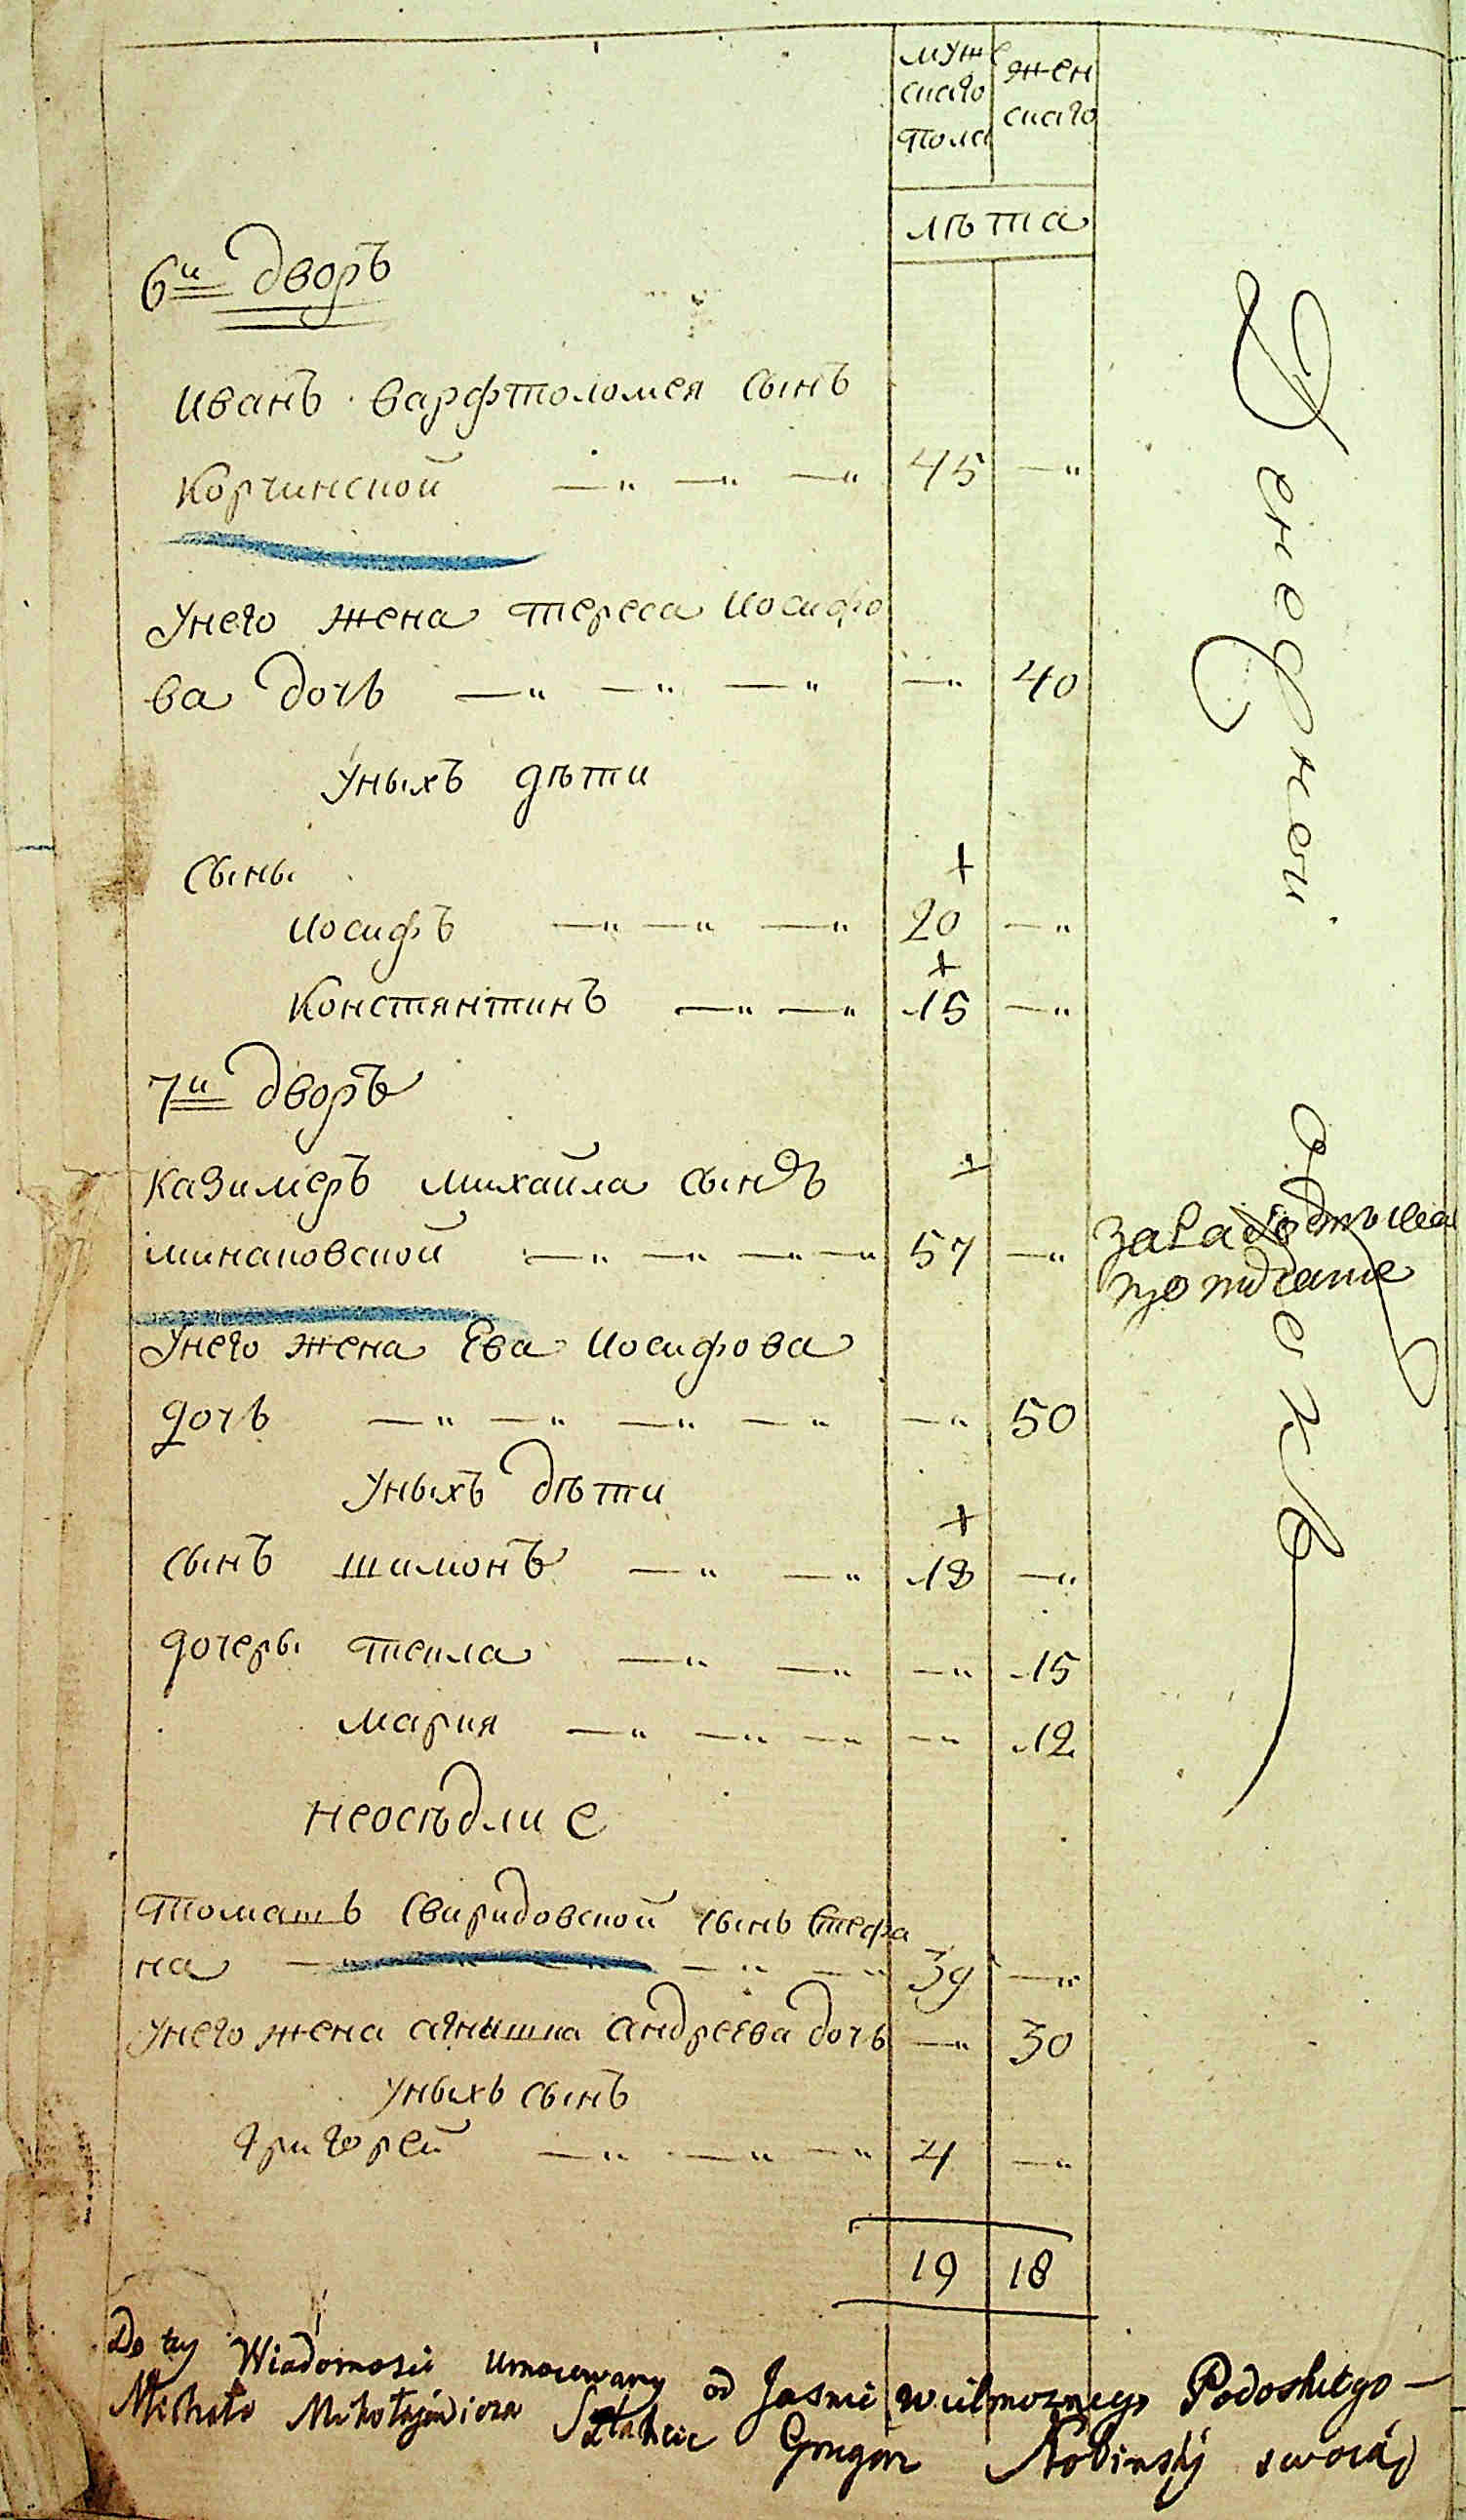 мужескаго пола
женскаго
лѣта
6й дворъ
Иванъ Варфтоломея сынъ
Корчинской —" —" —" 45 —"
Унего жена Тереса Иосифо
ва дочь —" —" —" —" 40
Уныхъ дѣти
Сыны
Иосифъ —" —" —" 20 —"
Констянтинъ —" —" 15 —"
7й дворъ
Казимеръ Михайла сынъ
—" —" —" —" 57 —"
Унего жена Ева Иосифова
дочь —" —" —" —" —" 50
Уныхъ дѣти
сынъ Шимонъ —" —" 18 —"
дочеры Текла —" —" —" 15
Мария —" —" —" —" 12
неосѣдлие
Томашъ Свиридовской сынъ Стефа
на —" —" —" —" 39 —"
Унего жена Агнышка Андреева дочь —" 30
Уныхъ сынъ
Григорей —" —" —" 4 —"
19 18
Do tey Wiadomosci umocowany od Jasnie Wielmoznego Podoskiego —
Michała Mikołajewicza Szlachcic Grzegorz